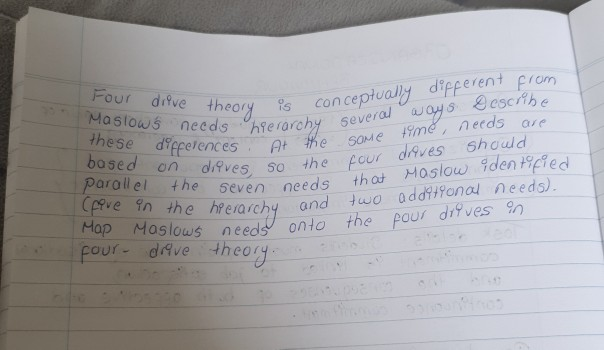 Four drive theory is conceptually different from
Maslow's needs hierarchy several ways Describe
these differences. At the same time, needs are
based on drives, so the four drives should
parallel the seven needs that Maslow identified
(five in the hierarchy and two additional needs).
Map Maslows needs onto the four drives in
four-drive theory.